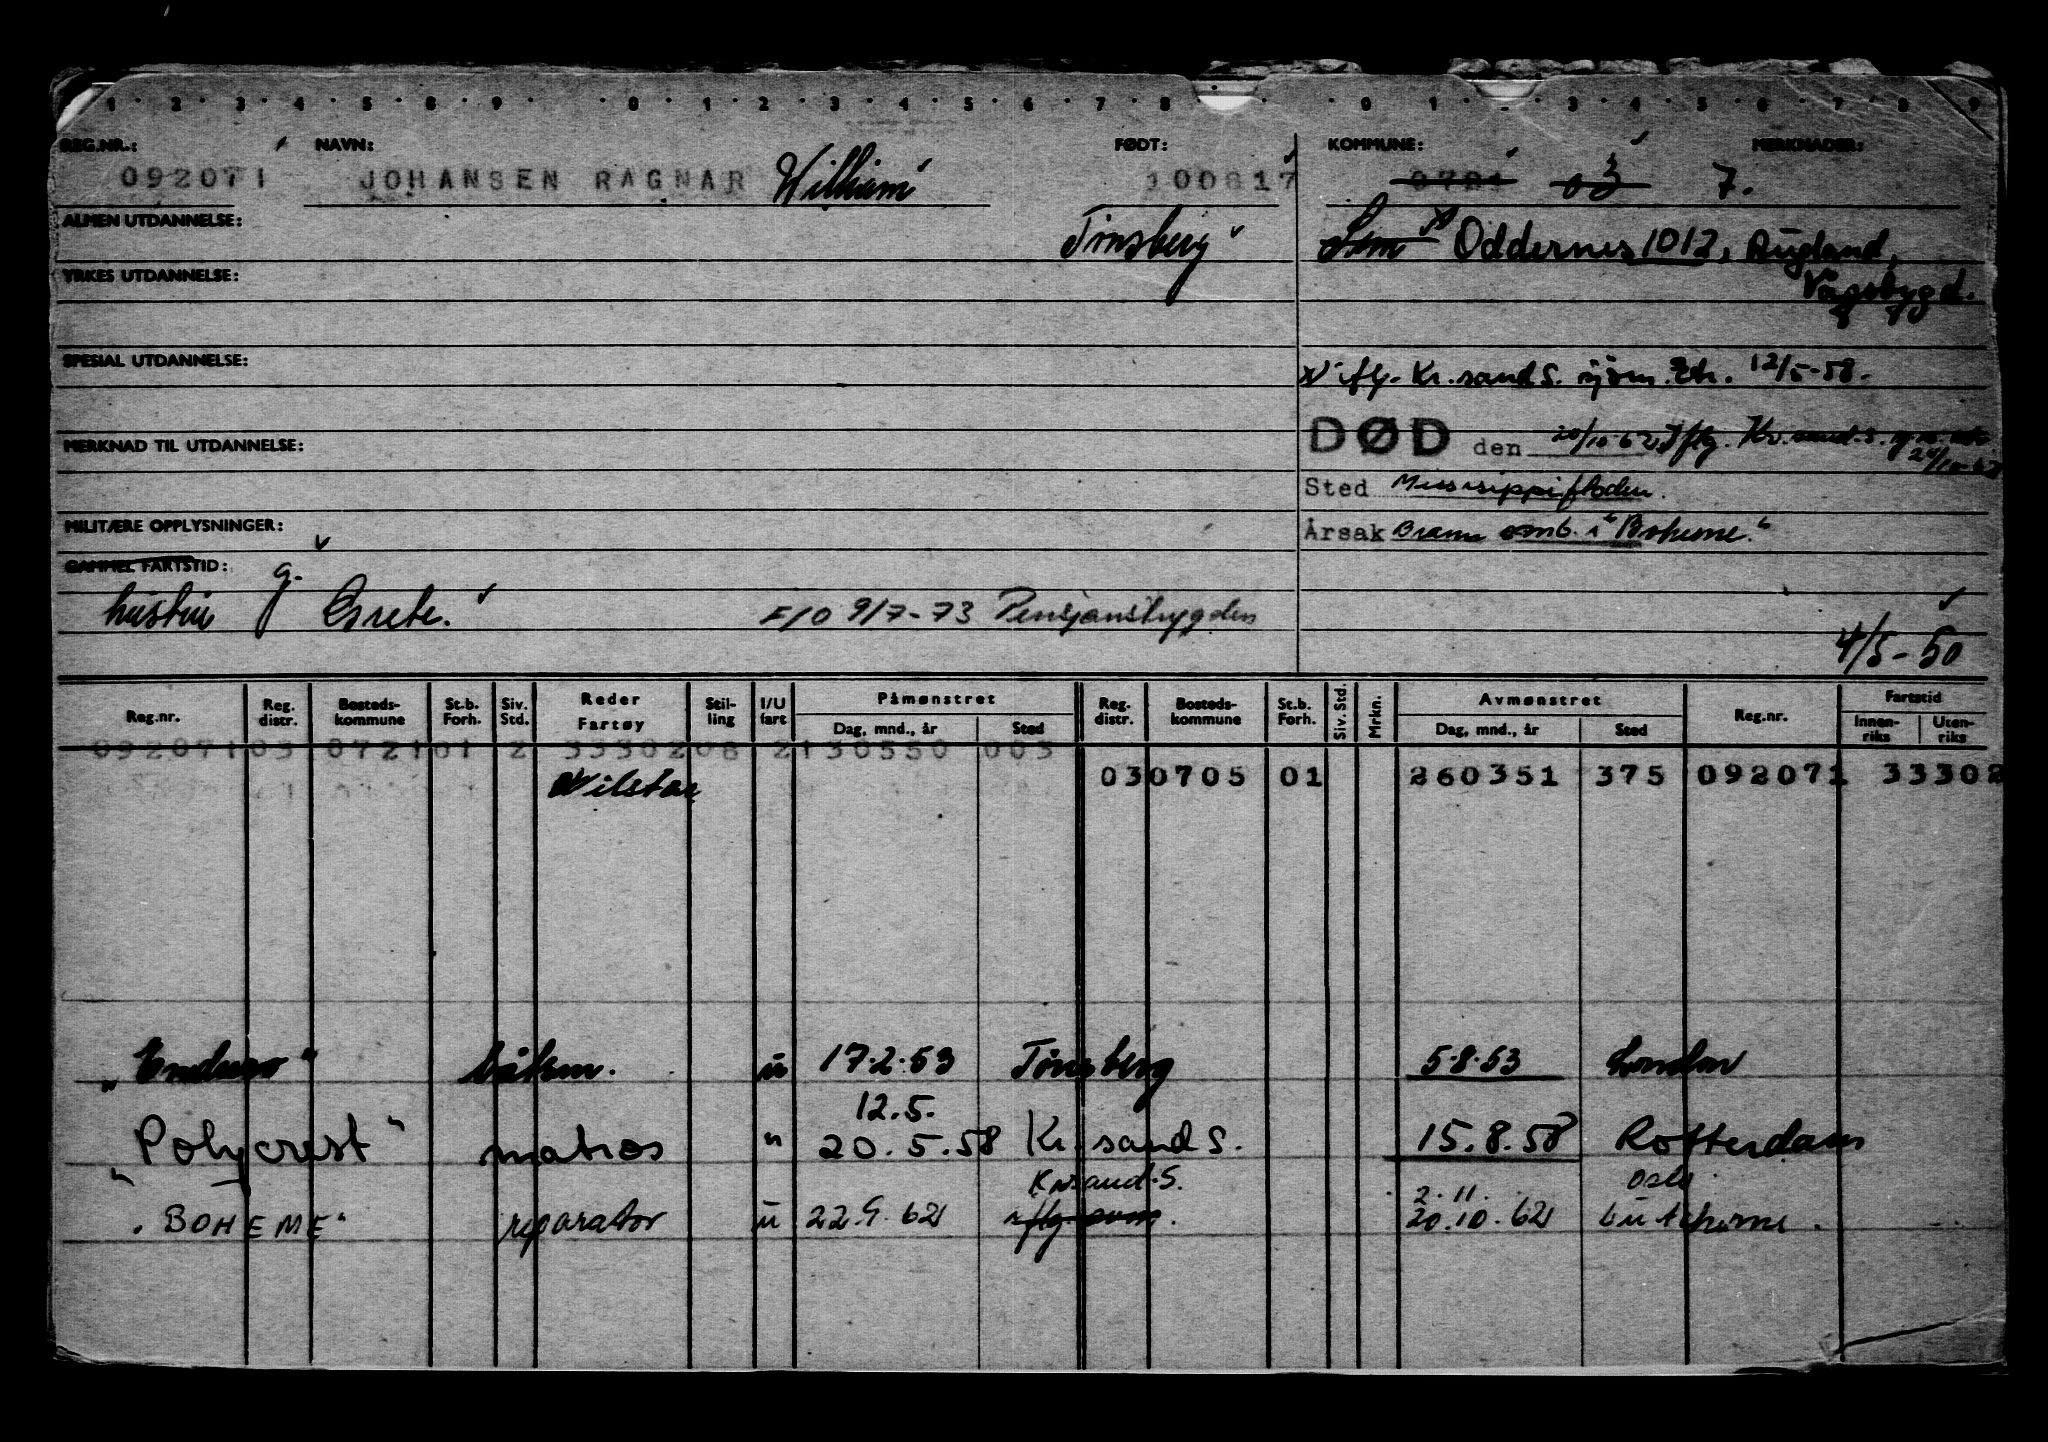 1 · 2 · 3 · 4 · 5 · 6 · 7 · 8 · 9 · 0 · 1 · 2 · 3 · 4 · 5 · 6 · 7 · 8 · 0 · 1 · 3 · 4 · 5 · 6 · 7 · 8 · 9
REG.NR.: NAVN: FØDT: KOMMUNE: MERKNADER:
092071 JOHANSEN RAGNAR William 100817 0721 03 7.
ALMEN UTDANNELSE: Tønsberg Sem x Oddernes 1012, Augland,
YRKES UTDANNELSE: Vågsbygd.
SPESIAL UTDANNELSE: x ifg. Kr.sand S. 12/5-58.
MERKNAD TIL UTDANNELSE: DØD den 20/10-62 Iflg. Kr.sand.S.
Sted Missisippifloden.
MILITÆRE OPPLYSNINGER: Årsak Brann omb. i "Boheme"
GAMMEL FARTSTID:
hustru g. Grete. F/O 9/7-73 Pensjonstrygden
4/5-50
Reg.nr. Reg. distr. Bosteds-kommune St.b. Forh. Siv. Std. Reder Fartøy Stil-ling I/U fart Påmønstret Dag, mnd., år Sted Reg. distr. Bosteds-kommune St.b. Forh. Siv. Std. Mrkn. Avmønstret Dag, mnd., år Sted Reg.nr. Fartstid Innen-riks Uten-riks
092071 03 0721 01 2 33302 08 2 130550 003
Wilstar 030705 01 260351 375 092071 33302
"Enduro" båtsm. u 17.2.53 Tønsberg 5.8.53 London
12.5.
"Polycrest" matros " 20.5.58 Kr.sand S. 15.8.58 Rotterdam
Kr.sand.S. 2.11. Oslo
"BOHEME" reparatør u 22.9.62 20.10.62